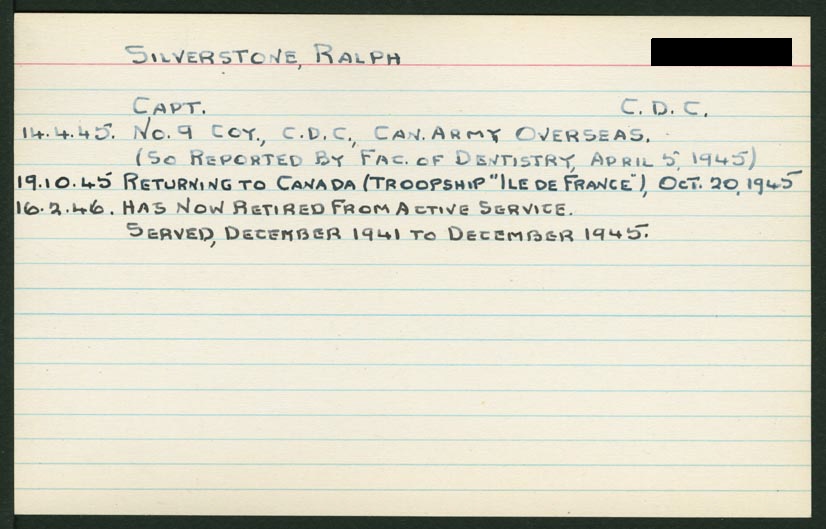 SILVERSTONE, RALPH
CAPT. C.D.C.
14.4.45. NO. 9 COY., C.D.C., CAN. ARMY OVERSEAS.
(SO REPORTED BY FAC. OF DENTISTRY, APRIL 5, 1945)
19.10.45 RETURNING TO CANADA (TROOPSHIP "ILE DE FRANCE"), OCT. 20, 1945
16.2.46. HAS NOW RETIRED FROM ACTIVE SERVICE.
SERVED, DECEMBER 1941 TO DECEMBER 1945.